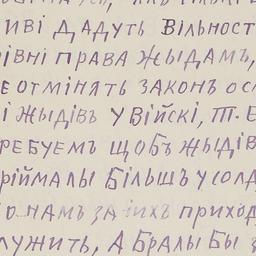 иві дадуть Вільност
рівні права жыдамъ,
е отмінять законъ ос
і жыдівъ у війскі, т. е
ребуемъ щобъ жыдів
ріймалы більшъ у солд
о намъ за іихъ приход
лужить, а бралы бы з